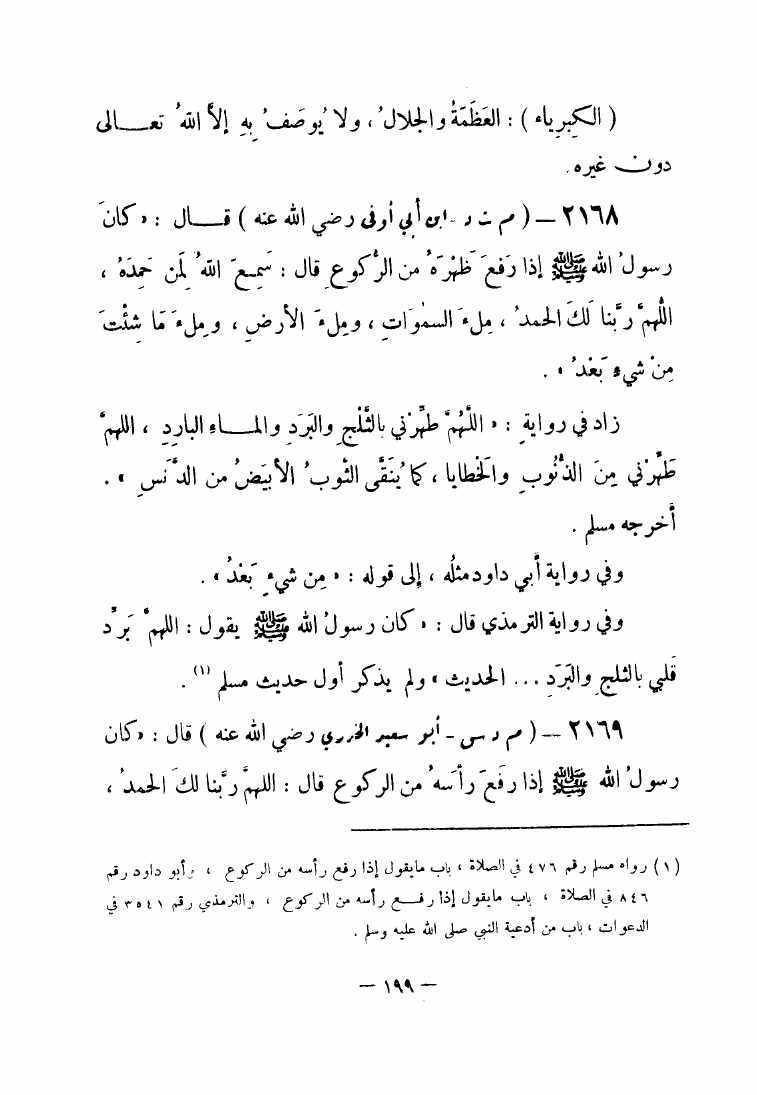 ( الكِبرِياء ) : العَظَمَةُ والجلالُ ، ولا يُوصَفُ بِهِ إلاَّ اللهُ تعــالى
دون غيره .
٢١٦٨ – ( م ت د - ابن أبي أوفى رضي الله عنه ) قــال : « كانَ
رسولُ الله ﷺ إذا رَفَعَ ظَهْرَهُ من الرُّكوعِ قال : سَمِعَ اللهُ لِمَن حَمِدَهُ ،
اللَّهمَّ ربَّنا لَكَ الحمدُ ، مِلءَ السمٰوَاتِ ، ومِلءَ الأرضِ ، ومِلءَ مَا شِئْتَ
مِنْ شيءٍ بَعْدُ » .
زاد في روايةٍ : « اللَّهُمَّ طهِّرْني بالثَّلْجِ والبَرَدِ والمــاءِ الباردِ ، اللهمَّ
طَهِّرْني مِنَ الذُّنُوبِ والخَطايا ، كما يُنَقَّى الثوبُ الأبيَضُ من الدَّنَسِ » .
أخرجه مسلم .
وفي رواية أبي داود مثلُه ، إلى قوله : « مِن شيءٍ بَعْدُ » .
وفي رواية الترمذي قال : « كان رسولُ الله ﷺ يقول : اللهمَّ بَرِّد
قَلبي بالثلجِ والبَرَدِ ... الحديث » ولم يذكر أول حديث مسلم (١) .
٢١٦٩ – ( م د س - أبو سعيد الخدري رضي الله عنه ) قال : «كان
رسولُ الله ﷺ إذا رفَعَ رأسَهُ من الركوع قال : اللهمَّ ربَّنا لكَ الحمدُ ،
(١) رواه مسلم رقم ٤٧٦ في الصلاة ، باب مايقول إذا رفع رأسه من الركوع ، وأبو داود رقم
٨٤٦ في الصلاة ، باب مايقول إذا رفــع رأسه من الركوع ، والترمذي رقم ٣٥٤١ في
الدعوات ، باب من أدعية النبي صلى الله عليه وسلم .
– ١٩٩ –